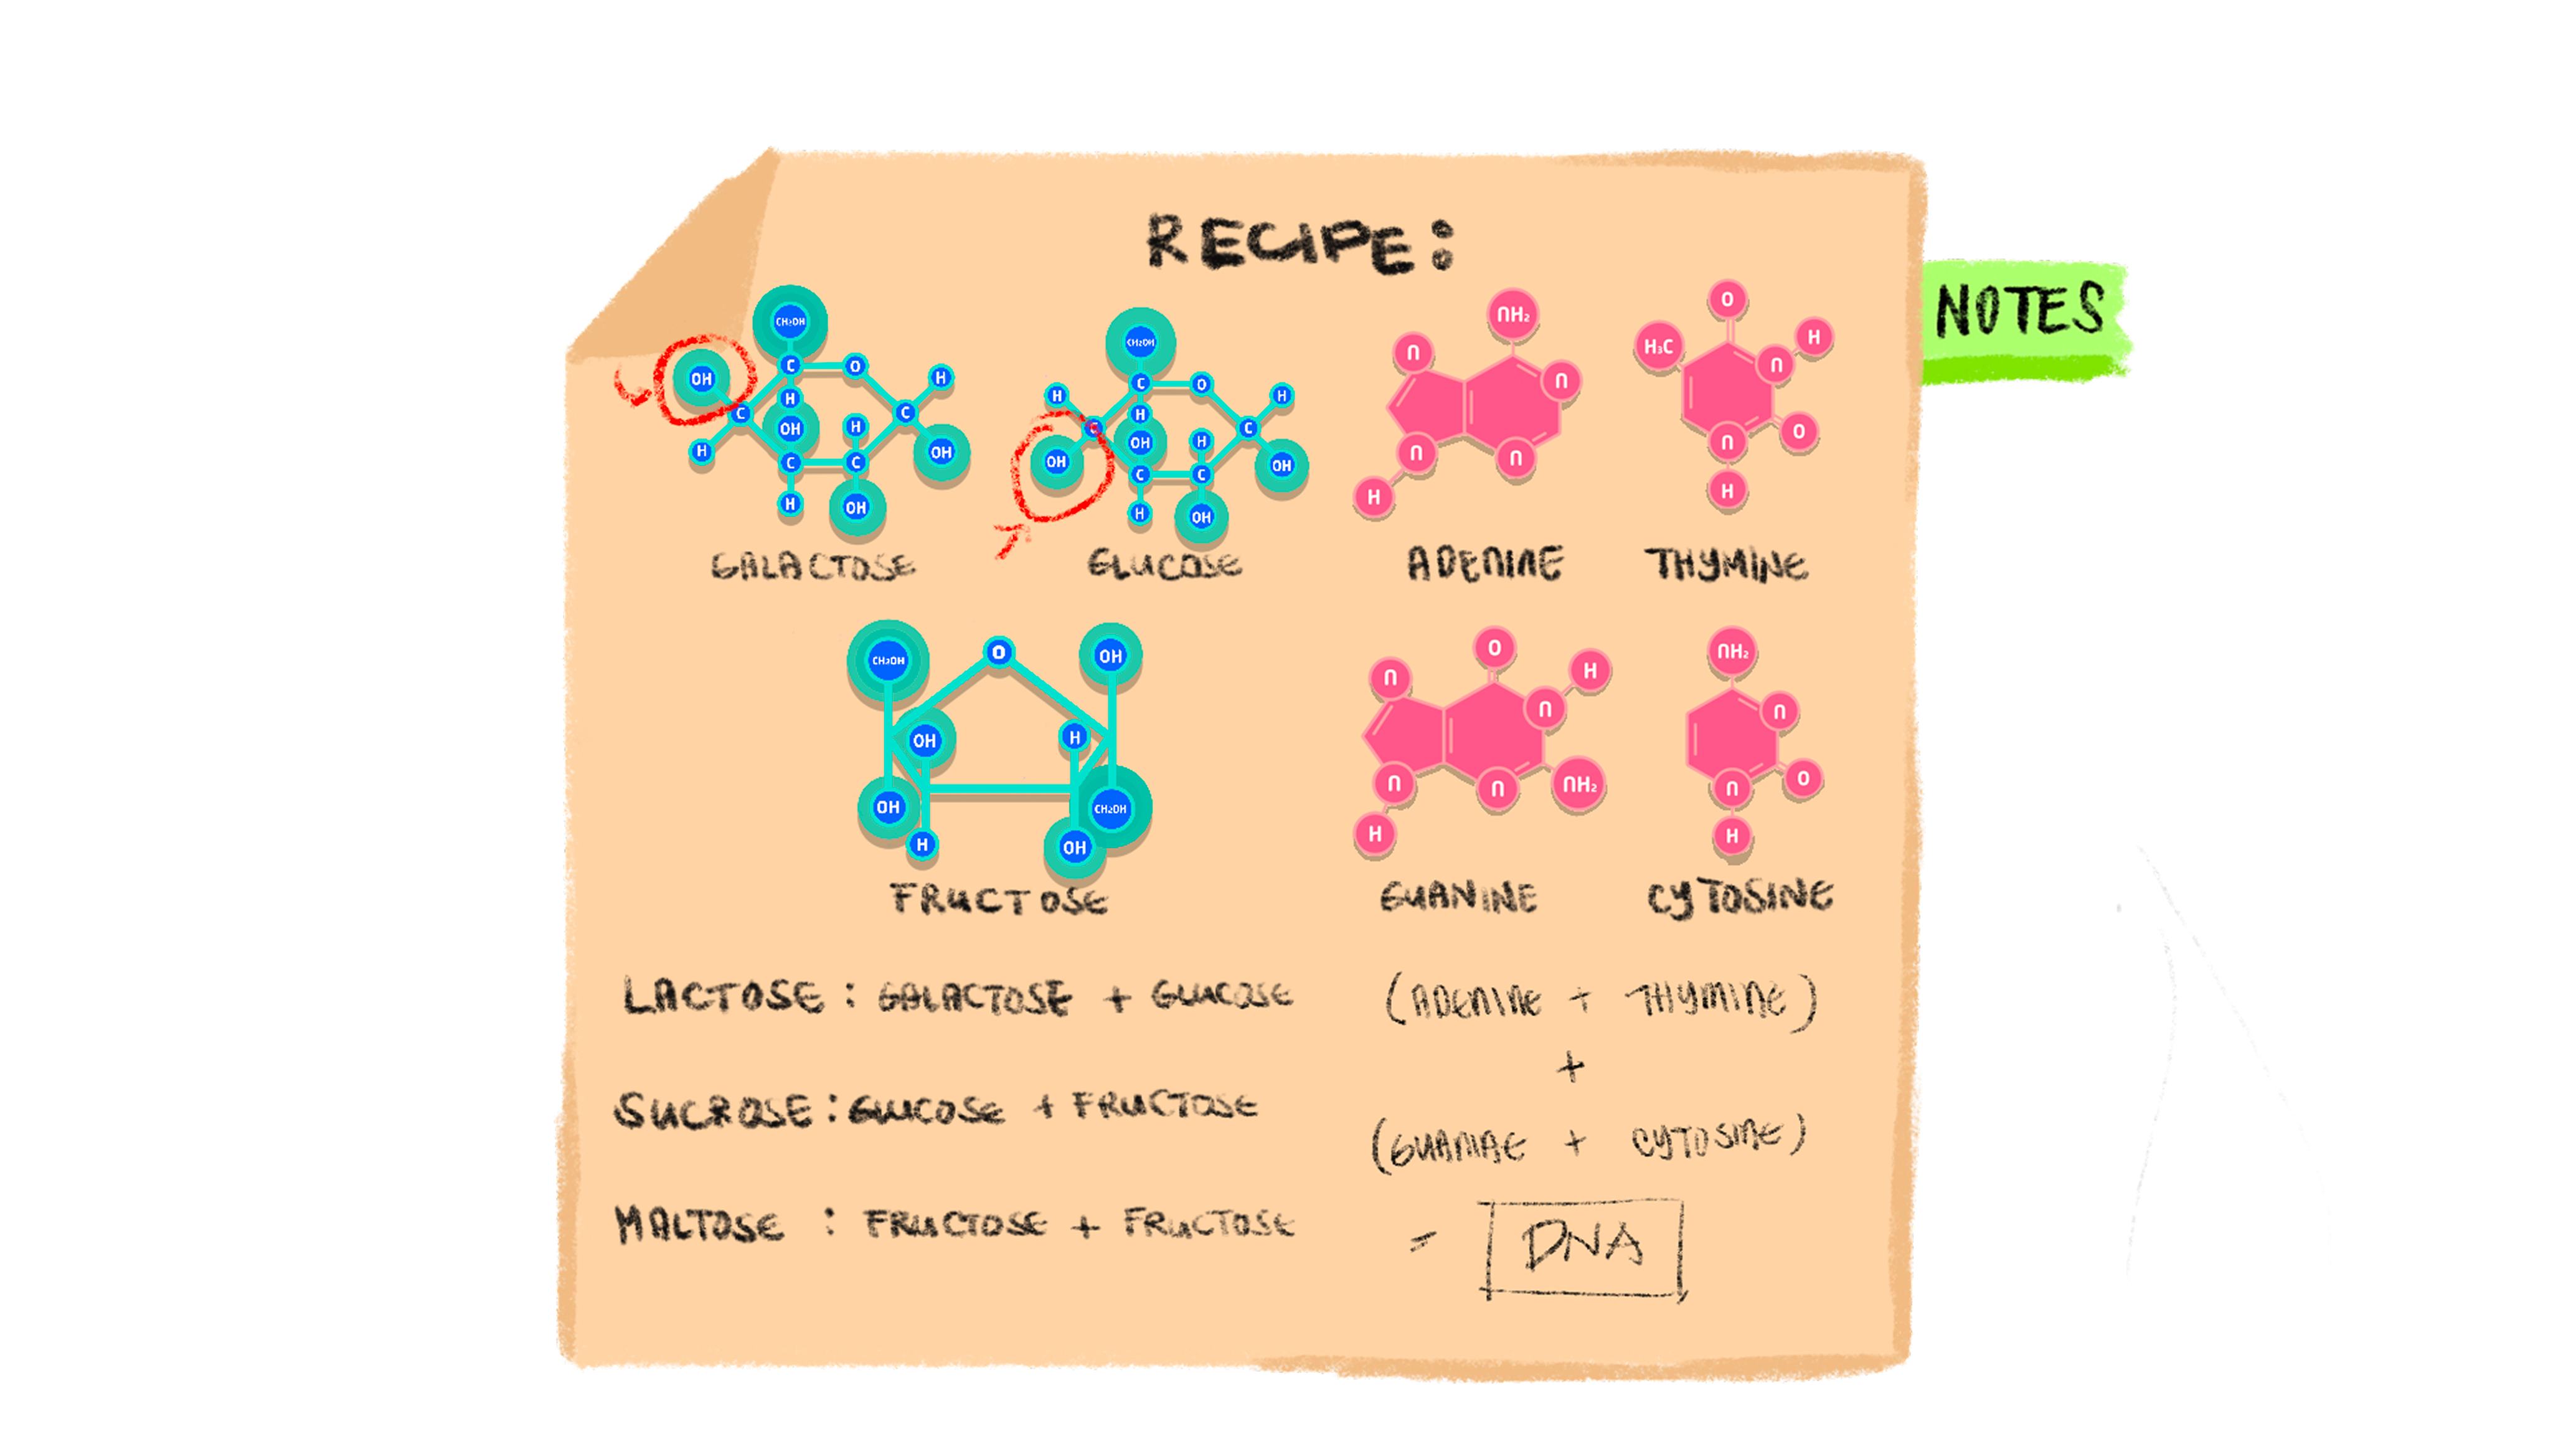 RECIPE:
NOTES
CH₂OH
OH
C
O
H
H
C
C
OH
H
H
C
C
OH
H
OH
GALACTOSE
CH₂OH
H
C
O
H
C
H
C
OH
H
OH
C
C
OH
H
OH
GLUCOSE
NH₂
N
N
N
N
H
ADENINE
O
H₃C
H
N
O
N
H
THYMINE
CH₂OH
O
OH
OH
H
OH
CH₂OH
H
OH
FRUCTOSE
O
N
H
N
N
N
NH₂
H
GUANINE
NH₂
N
O
N
H
CYTOSINE
LACTOSE : GALACTOSE + GLUCOSE
SUCROSE : GLUCOSE + FRUCTOSE
MALTOSE : FRUCTOSE + FRUCTOSE
(ADENINE + THYMINE)
+
(GUANINE + CYTOSINE)
= DNA